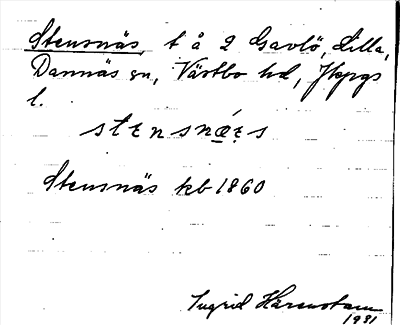 Stensnäs, t å 2 Gavlö, Lilla,
Dannäs sn, Västbo hd, Jkpgs
l.
stensnæs
Stensnäs kb 1860
Ingrid Härenstam
1931